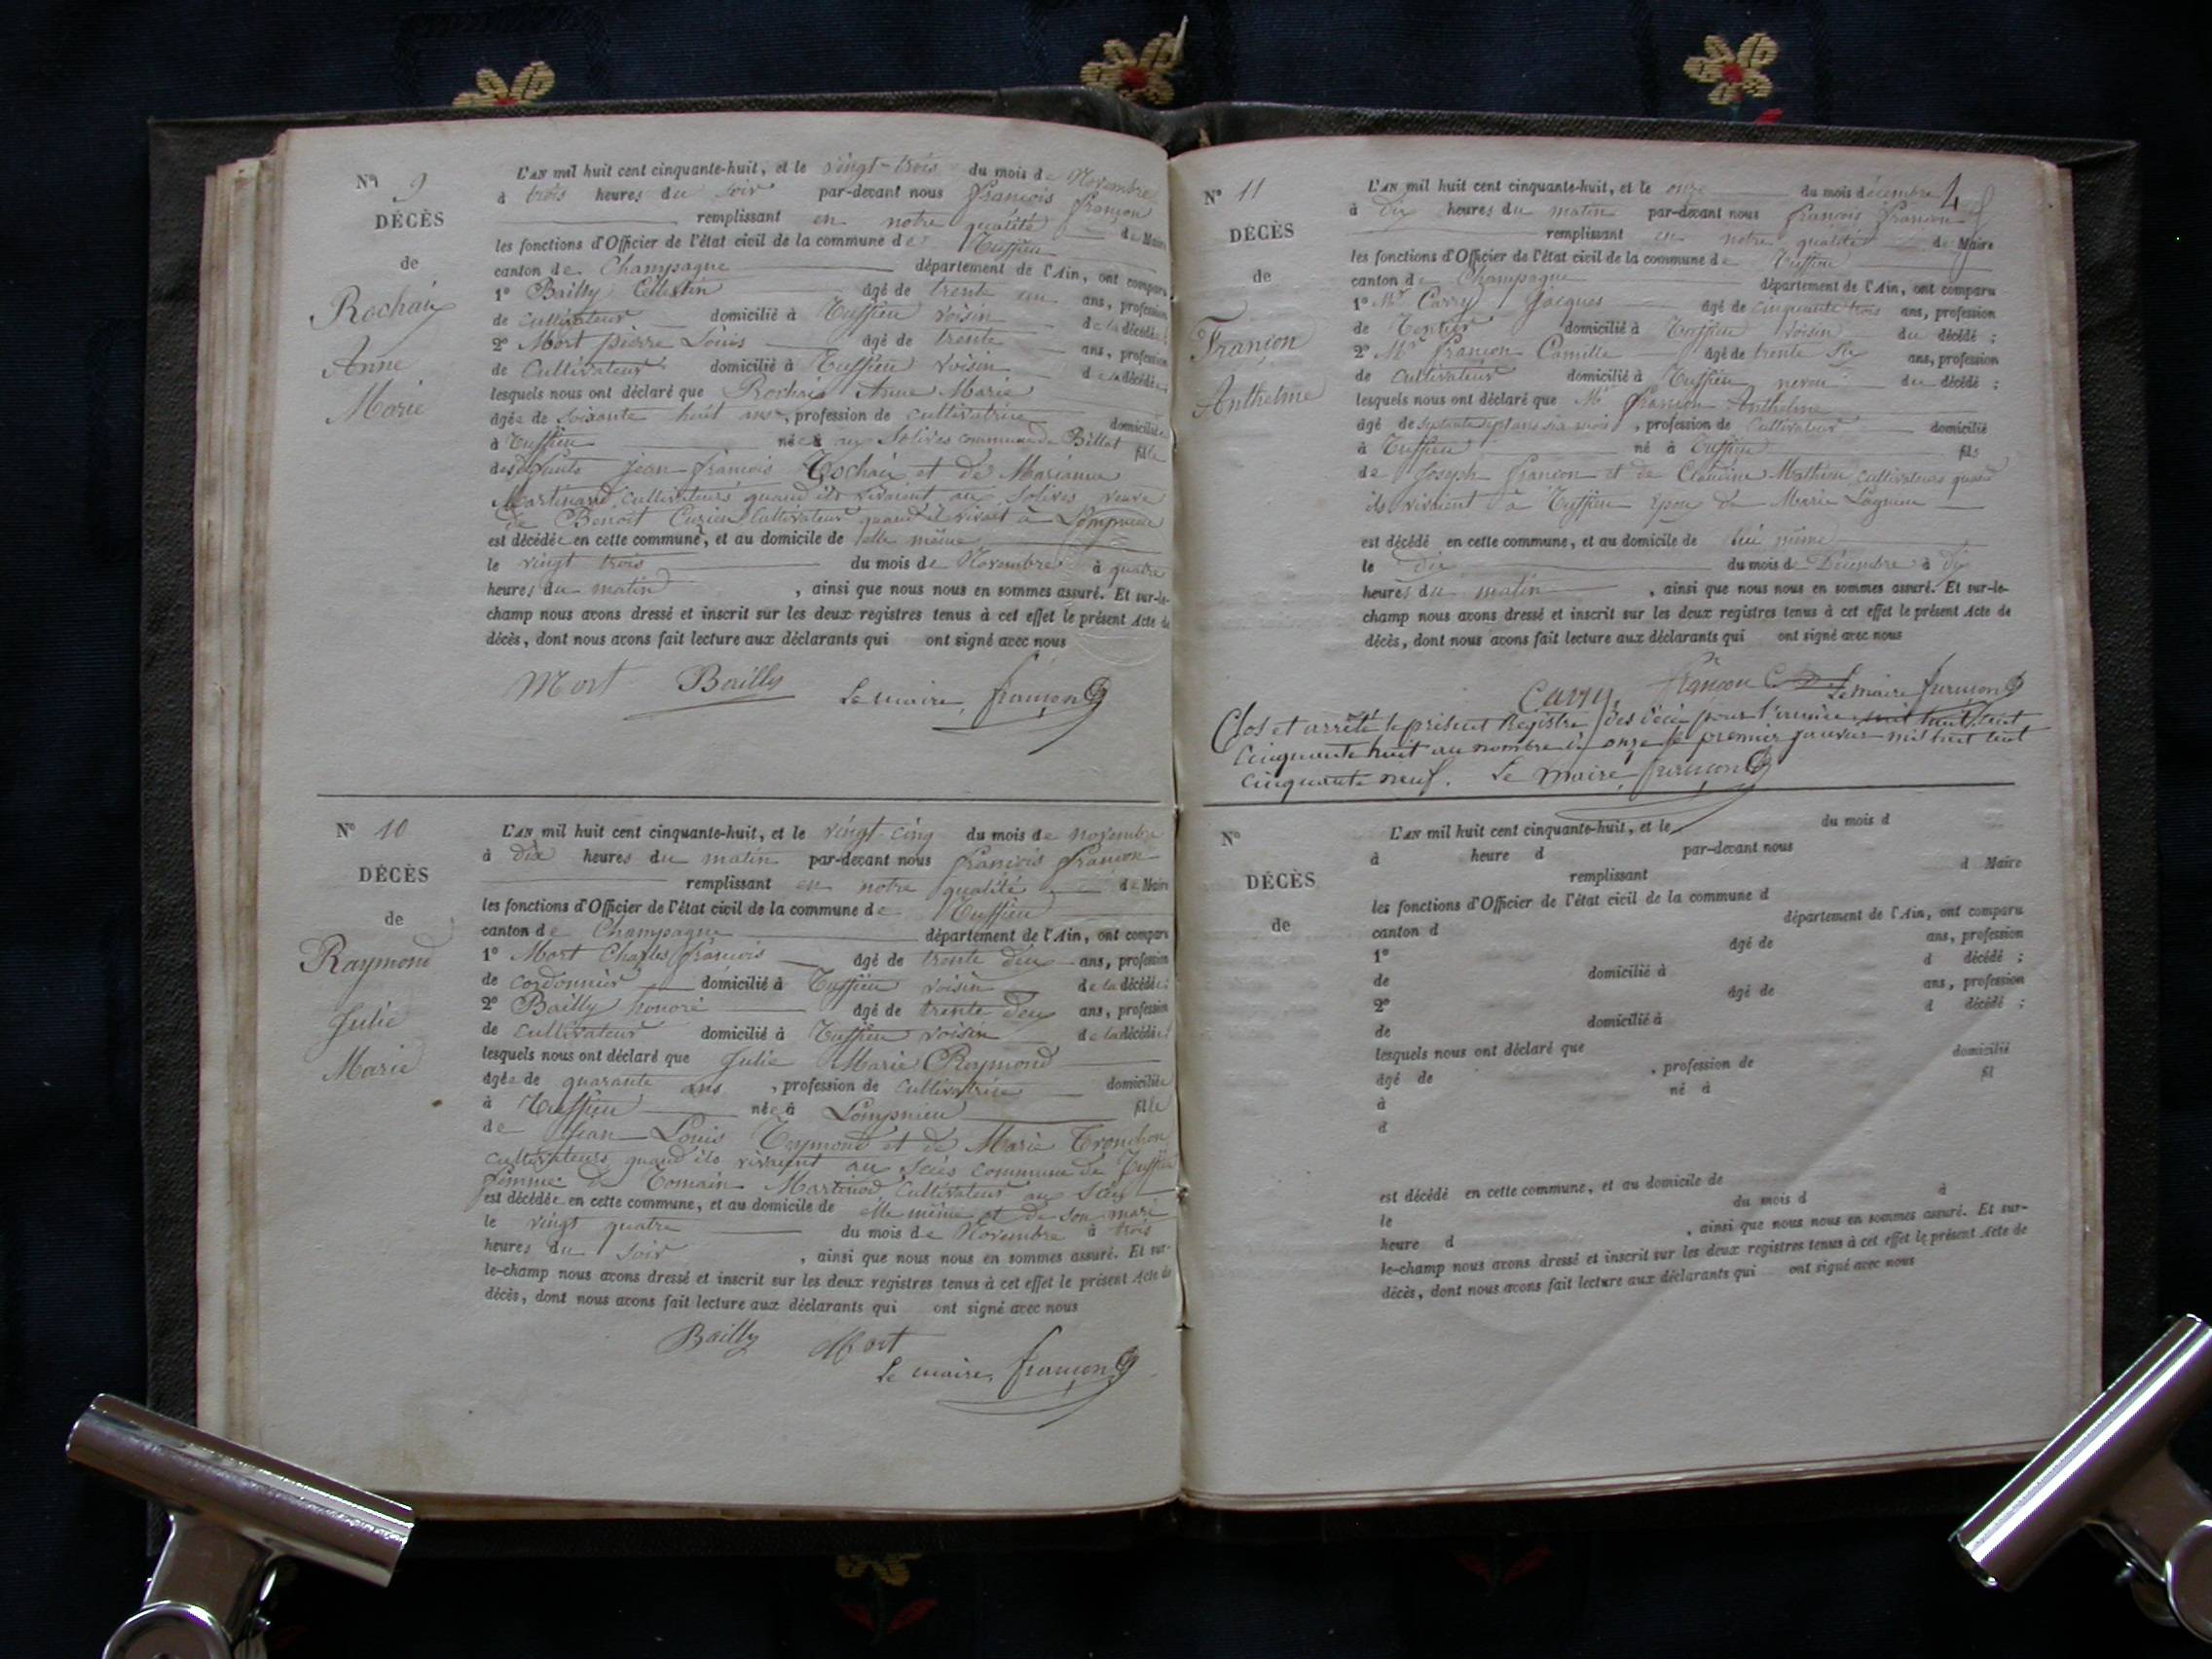 N° 9
DÉCÈS
de
Rochaix
Anne
Marie
L'AN mil huit cent cinquante-huit, et le vingt-trois du mois de Novembre
à trois heures du soir par-devant nous françois françon
remplissant en notre qualité de Maire
les fonctions d'Officier de l'état civil de la commune de Ruffieu
canton de Champagne département de l'Ain, ont comparu
1° Bailly Célestin âgé de trente un ans, profession
de cultivateur domicilié à Ruffieu voisin de la décédée;
2° Mort pierre Louis âgé de trente ans, profession
de Cultivateur domicilié à Ruffieu voisin de la décédée;
lesquels nous ont déclaré que Rochaix Anne Marie
âgée de soixante huit ans, profession de cultivatrice domiciliée
à Ruffieu née aux Solives commune de Billat fille
des défunts Jean françois Rochaix et de Marianne
Martinand cultivateurs quand ils vivaient aux Solives veuve
de Benoit Cuzieu Cultivateur quand il vivait à Lompnieu
est décédée en cette commune, et au domicile de elle même
le vingt trois du mois de Novembre à quatre
heures du matin, ainsi que nous nous en sommes assuré. Et sur-le-
champ nous avons dressé et inscrit sur les deux registres tenus à cet effet le présent Acte de
décès, dont nous avons fait lecture aux déclarants qui ont signé avec nous
Mort Bailly Le maire, françon
N° 10
DÉCÈS
de
Raymond
Julie
Marie
L'AN mil huit cent cinquante-huit, et le vingt-cinq du mois de novembre
à dix heures du matin par-devant nous françois françon
remplissant en notre qualité de Maire
les fonctions d'Officier de l'état civil de la commune de Ruffieu
canton de Champagne département de l'Ain, ont comparu
1° Mort Charles françois âgé de trente deux ans, profession
de cordonnier domicilié à Ruffieu voisin de la décédée;
2° Bailly honoré âgé de trente deux ans, profession
de cultivateur domicilié à Ruffieu voisin de la décédée;
lesquels nous ont déclaré que Julie Marie Raymond
âgée de quarante ans, profession de Cultivatrice domiciliée
à Ruffieu née à Lompnieu fille
de Jean Louis Raymond et de Marie Tronchon
cultivateurs quand ils vivaient au commune de Ruffieu
femme de Romain Martinod Cultivateur au
est décédée en cette commune, et au domicile de elle même et de son mari
le vingt quatre du mois de Novembre à trois
heures du soir, ainsi que nous nous en sommes assuré. Et sur-
le-champ nous avons dressé et inscrit sur les deux registres tenus à cet effet le présent Acte de
décès, dont nous avons fait lecture aux déclarants qui ont signé avec nous
Bailly Mort
Le maire, françon
N° 11
DÉCÈS
de
Françon
Anthelme
L'AN mil huit cent cinquante-huit, et le onze du mois décembre 4
à dix heures du matin par-devant nous françois françon
remplissant en notre qualité de Maire
les fonctions d'Officier de l'état civil de la commune de Ruffieu
canton de Champagne département de l'Ain, ont comparu
1° Mr Carry Jacques âgé de cinquante trois ans, profession
de Rentier domicilié à Ruffieu voisin du décédé;
2° Mr françon Camille âgé de trente six ans, profession
de cultivateur domicilié à Ruffieu neveu du décédé;
lesquels nous ont déclaré que Mr françon Anthelme
âgé de septante sept ans six mois, profession de Cultivateur domicilié
à Ruffieu né à Ruffieu fils
de Joseph françon et de Claudine Mathieu cultivateurs quand
ils vivaient à Ruffieu Epoux de Marie Lagneu
est décédé en cette commune, et au domicile de lui même
le dix du mois de Décembre à dix
heures du matin, ainsi que nous nous en sommes assuré. Et sur-le-
champ nous avons dressé et inscrit sur les deux registres tenus à cet effet le présent Acte de
décès, dont nous avons fait lecture aux déclarants qui ont signé avec nous
Carry françon C Le maire françon
Clos et arrêté le présent Registre des décès pour l'année mil huit cent
Cinquante huit au nombre de onze le premier janvier mil huit cent
cinquante neuf. Le maire, françon
N°
DÉCÈS
de
L'AN mil huit cent cinquante-huit, et le du mois d
à heure d par-devant nous
remplissant d Maire
les fonctions d'Officier de l'état civil de la commune d
canton d département de l'Ain, ont comparu
1° âgé de ans, profession
de domicilié à d décédé;
2° âgé de ans, profession
de domicilié à d décédé;
lesquels nous ont déclaré que
âgé de , profession de domicilié
à né à fil
d
est décédé en cette commune, et au domicile de
le du mois d à
heure d , ainsi que nous nous en sommes assuré. Et sur-
le-champ nous avons dressé et inscrit sur les deux registres tenus à cet effet le présent Acte de
décès, dont nous avons fait lecture aux déclarants qui ont signé avec nous